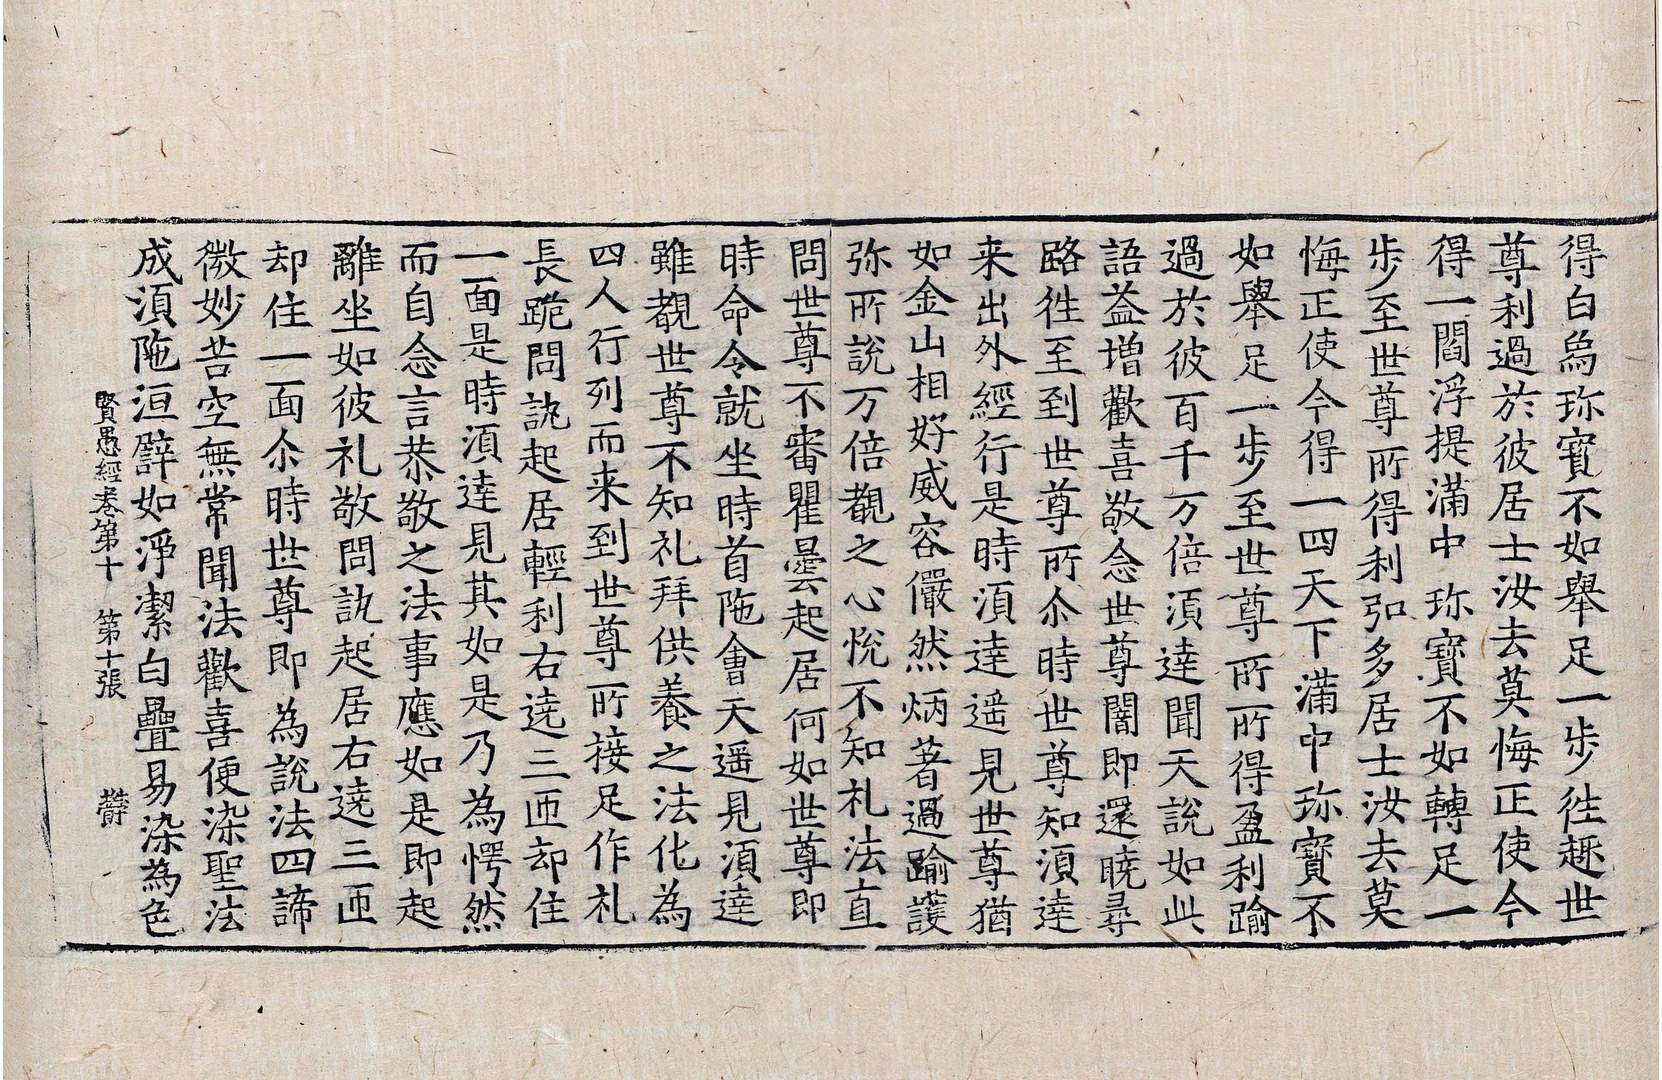 得白象珎寶不如舉足一步往趣世
尊利過於彼居士汝去莫悔正使今
得一閻浮提滿中珎寶不如轉足一
步至世尊所得利弘多居士汝去莫
悔正使今得一四天下滿中珎寶不
如舉足一步至世尊所所得盈利踰
過於彼百千万倍湏達聞天說如此
語益增歡喜敬念世尊闇即還曉尋
路往至到世尊所尒時世尊知湏達
来出外經行是時湏達遥見世尊猶
如金山相好威容儼然炳著過踰護
弥所說万倍覩之心悅不知礼法直
問世尊不審瞿曇起居何如世尊即
時命令就坐時首陁會天遥見湏達
雖覩世尊不知礼拜供養之法化為
四人行列而来到世尊所接足作礼
長跪問訊起居輕利右遶三匝却住
一面是時湏達見其如是乃為愕然
而自念言恭敬之法事應如是即起
離坐如彼礼敬問訊起居右遶三匝
却住一面尒時世尊即為說法四諦
微妙苦空無常聞法歡喜便染聖法
成湏陁洹譬如淨潔白疊易染為色
賢愚經卷第十 第十張